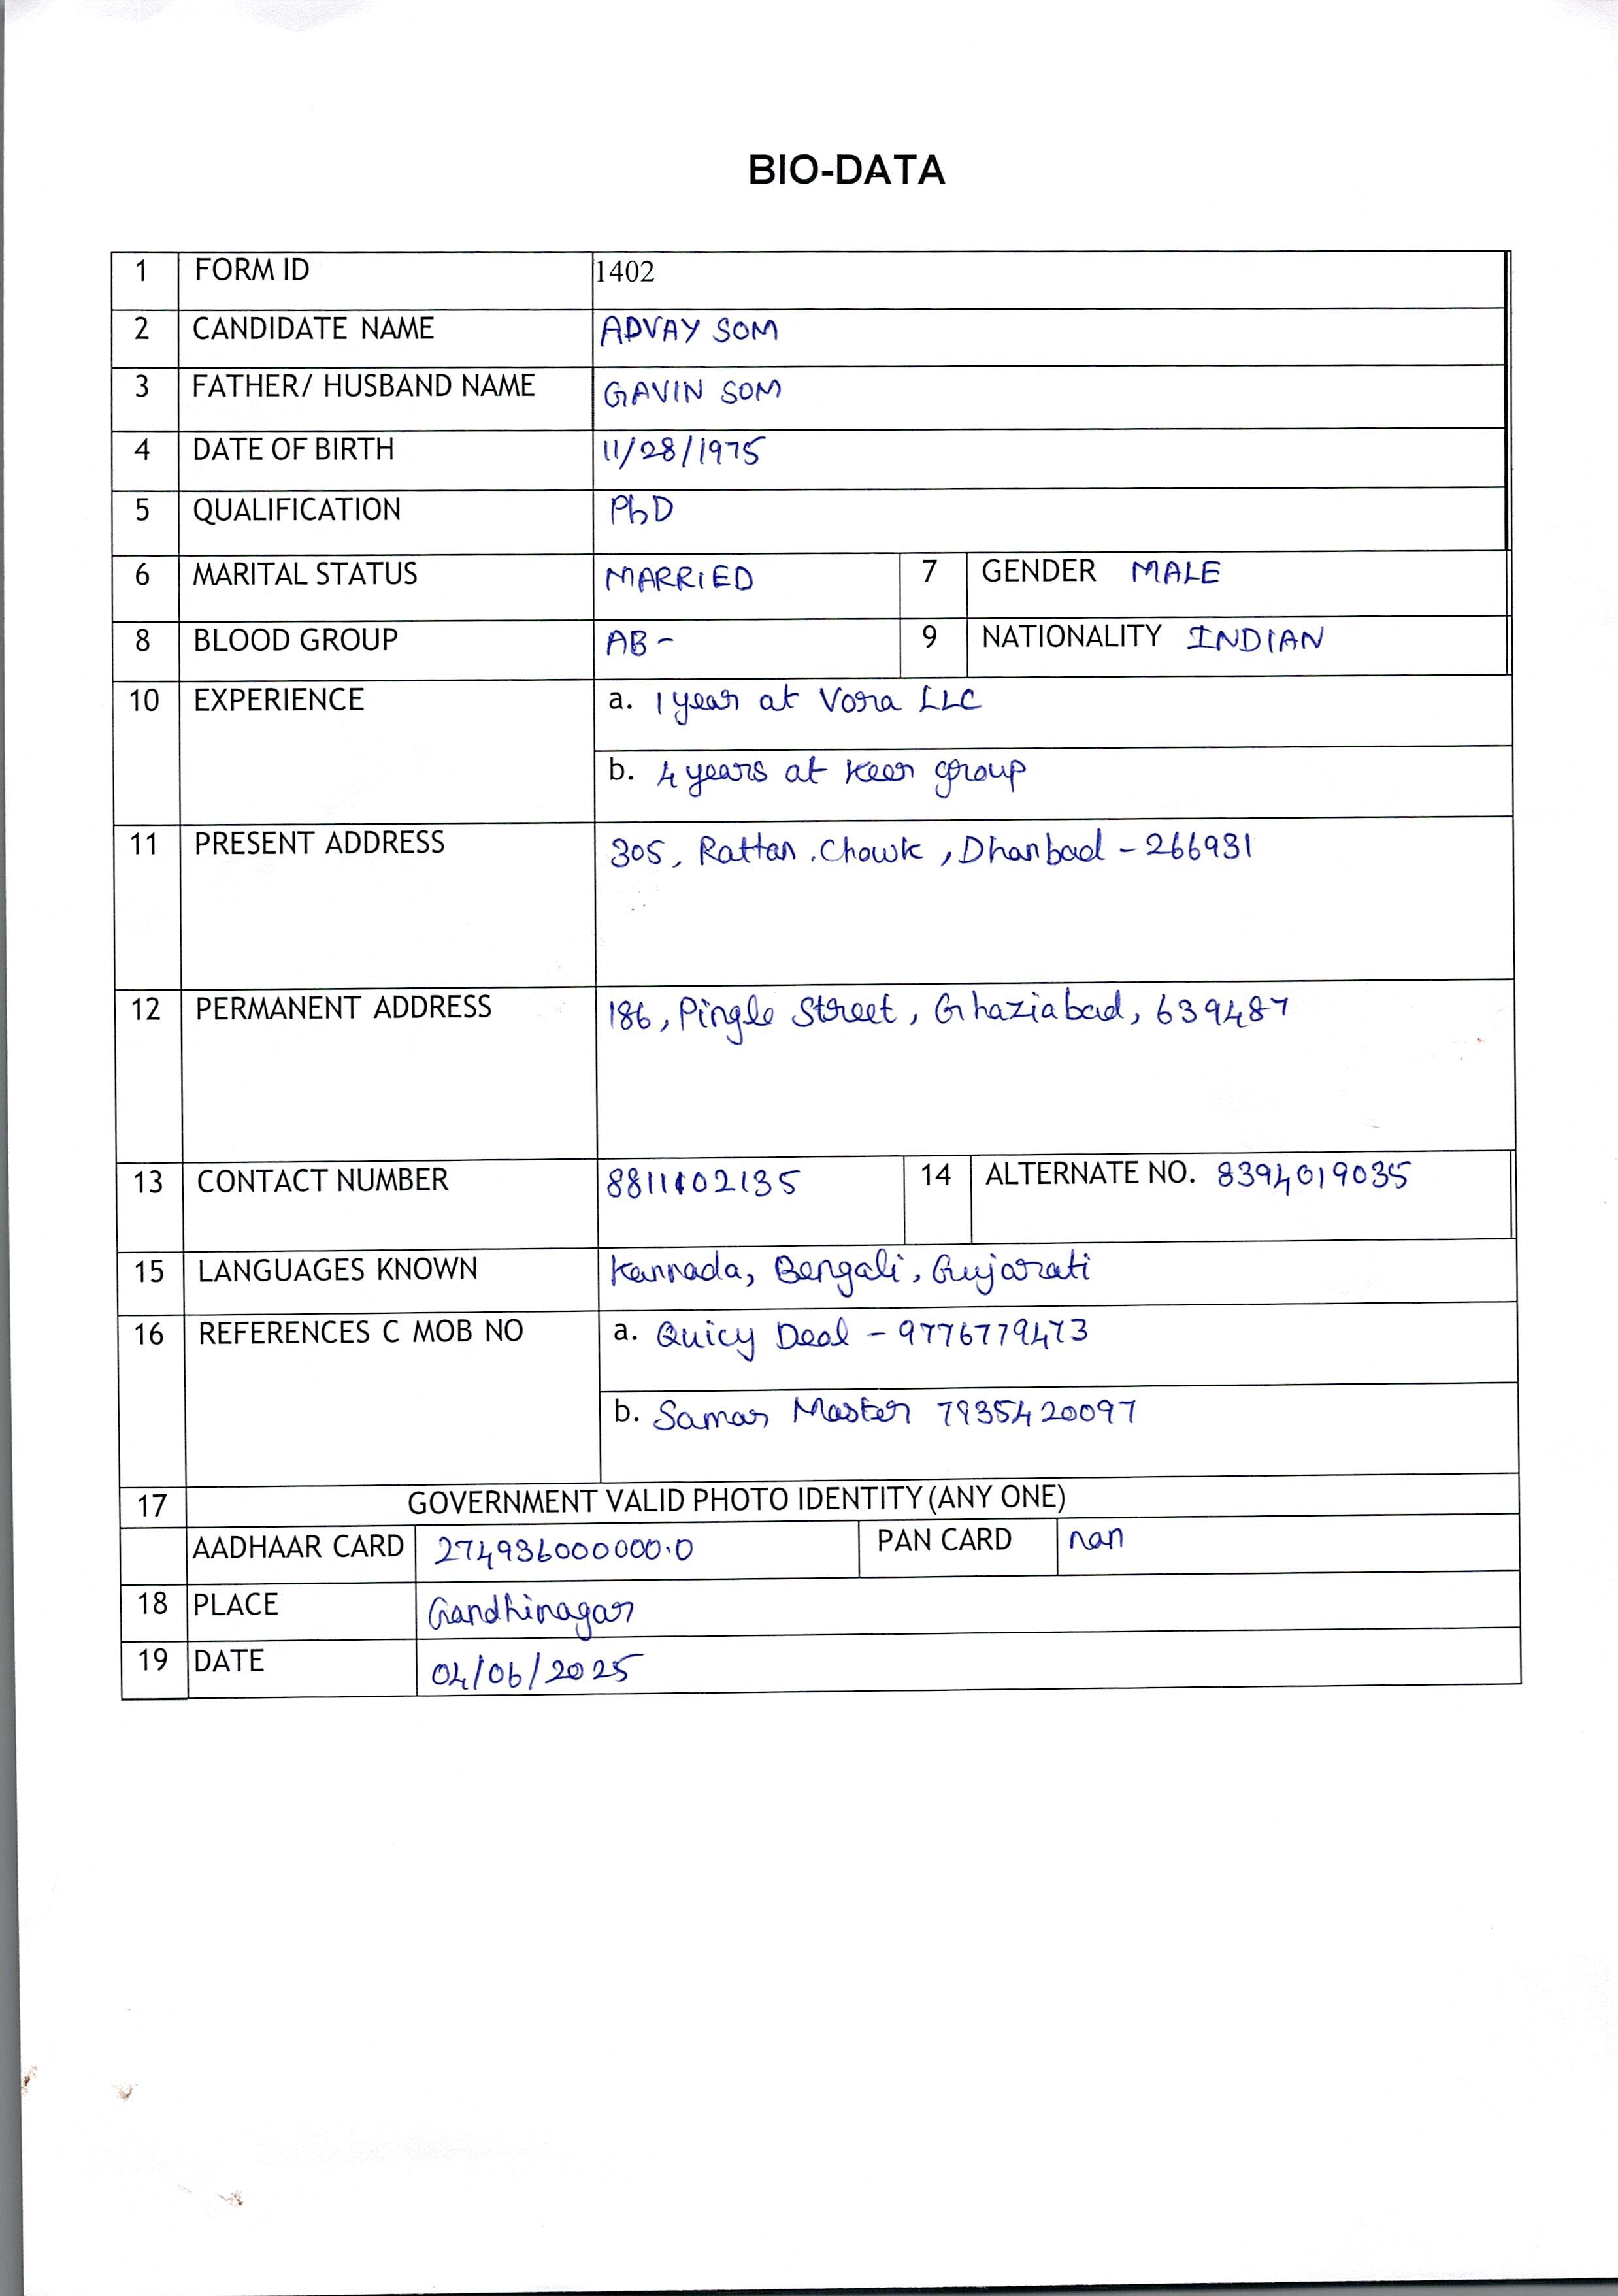 BIO-DATA
1 FORM ID 1402
2 CANDIDATE NAME ADVAY SOM
3 FATHER/ HUSBAND NAME GAVIN SOM
4 DATE OF BIRTH 11/28/1975
5 QUALIFICATION PhD
6 MARITAL STATUS MARRIED 7 GENDER MALE
8 BLOOD GROUP AB- 9 NATIONALITY INDIAN
10 EXPERIENCE a. 1 year at Vora LLC
b. 4 years at Keer group
11 PRESENT ADDRESS 305, Rattan, Chowk, Dhanbad - 266931
12 PERMANENT ADDRESS 186, Pingle Street, Ghaziabad, 639487
13 CONTACT NUMBER 8811102135 14 ALTERNATE NO. 8394019035
15 LANGUAGES KNOWN Kannada, Bengali, Gujarati
16 REFERENCES C MOB NO a. Quicy Deol - 9776779473
b. Samar Master 7935420097
17 GOVERNMENT VALID PHOTO IDENTITY (ANY ONE)
AADHAAR CARD 274936000000.0 PAN CARD nan
18 PLACE Gandhinagar
19 DATE 04/06/2025